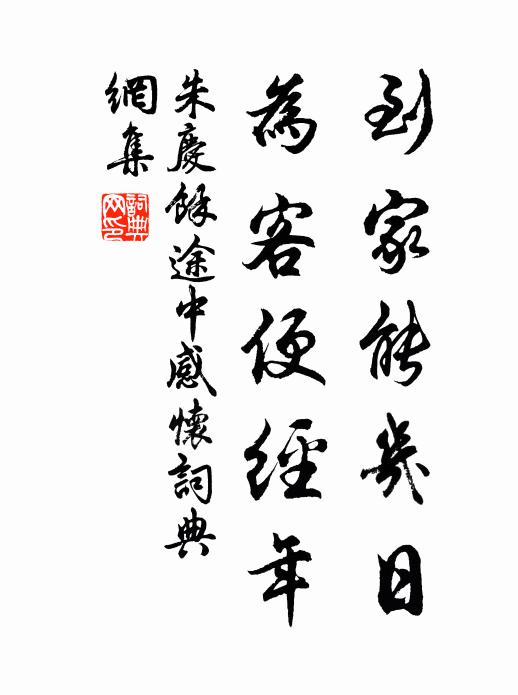 到家能幾日
為客便經年
朱慶餘途中感懷詞典
網集
詞典
网印